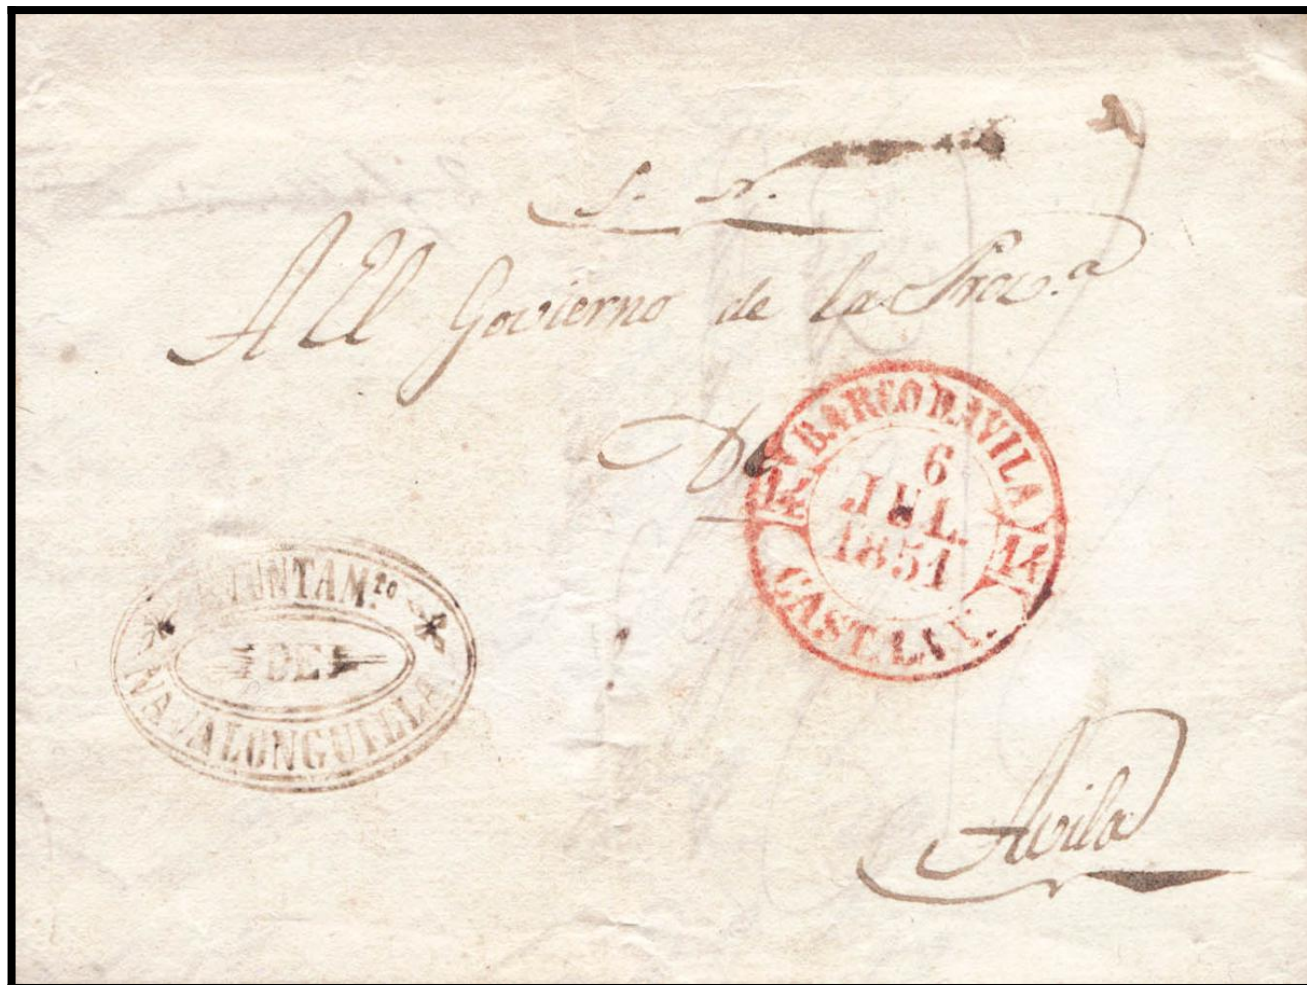 S. N.
All Govierno de la Prov.ª
De
BARCO D AVILA
12 12
6
JUL.
1851
CAST. LA V.
AYUNTAM.to
DE
NAVALONGUILLA
Avila